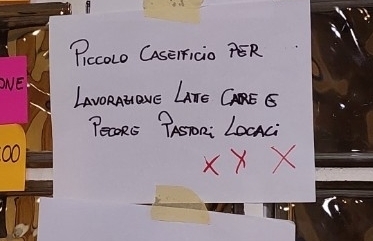 PICCOLO CASEIFICIO PER
LAVORAZIONE LATE CAPRE E
PECORE PASTORI LOCALI
X X X
ONE
00